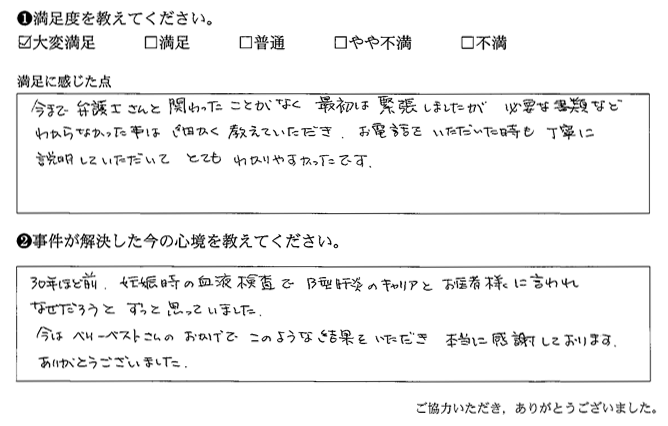 ❶満足度を教えてください。
☑大変満足 □満足 □普通 □やや不満 □不満
満足に感じた点
今まで弁護士さんと関わったことがなく 最初は緊張しましたが 必要な書類など
わからなかった事は 細かく教えていただき、お電話をいただいた時も丁寧に
説明していただいて とても わかりやすかったです。
❷事件が解決した今の心境を教えてください。
30年ほど前、妊娠時の血液検査で B型肝炎のキャリアと お医者様に言われ
なぜだろうと ずっと思っていました。
今は ベリーベストさんの おかげで このような結果をいただき 本当に感謝しております。
ありがとうございました。
ご協力いただき，ありがとうございました。